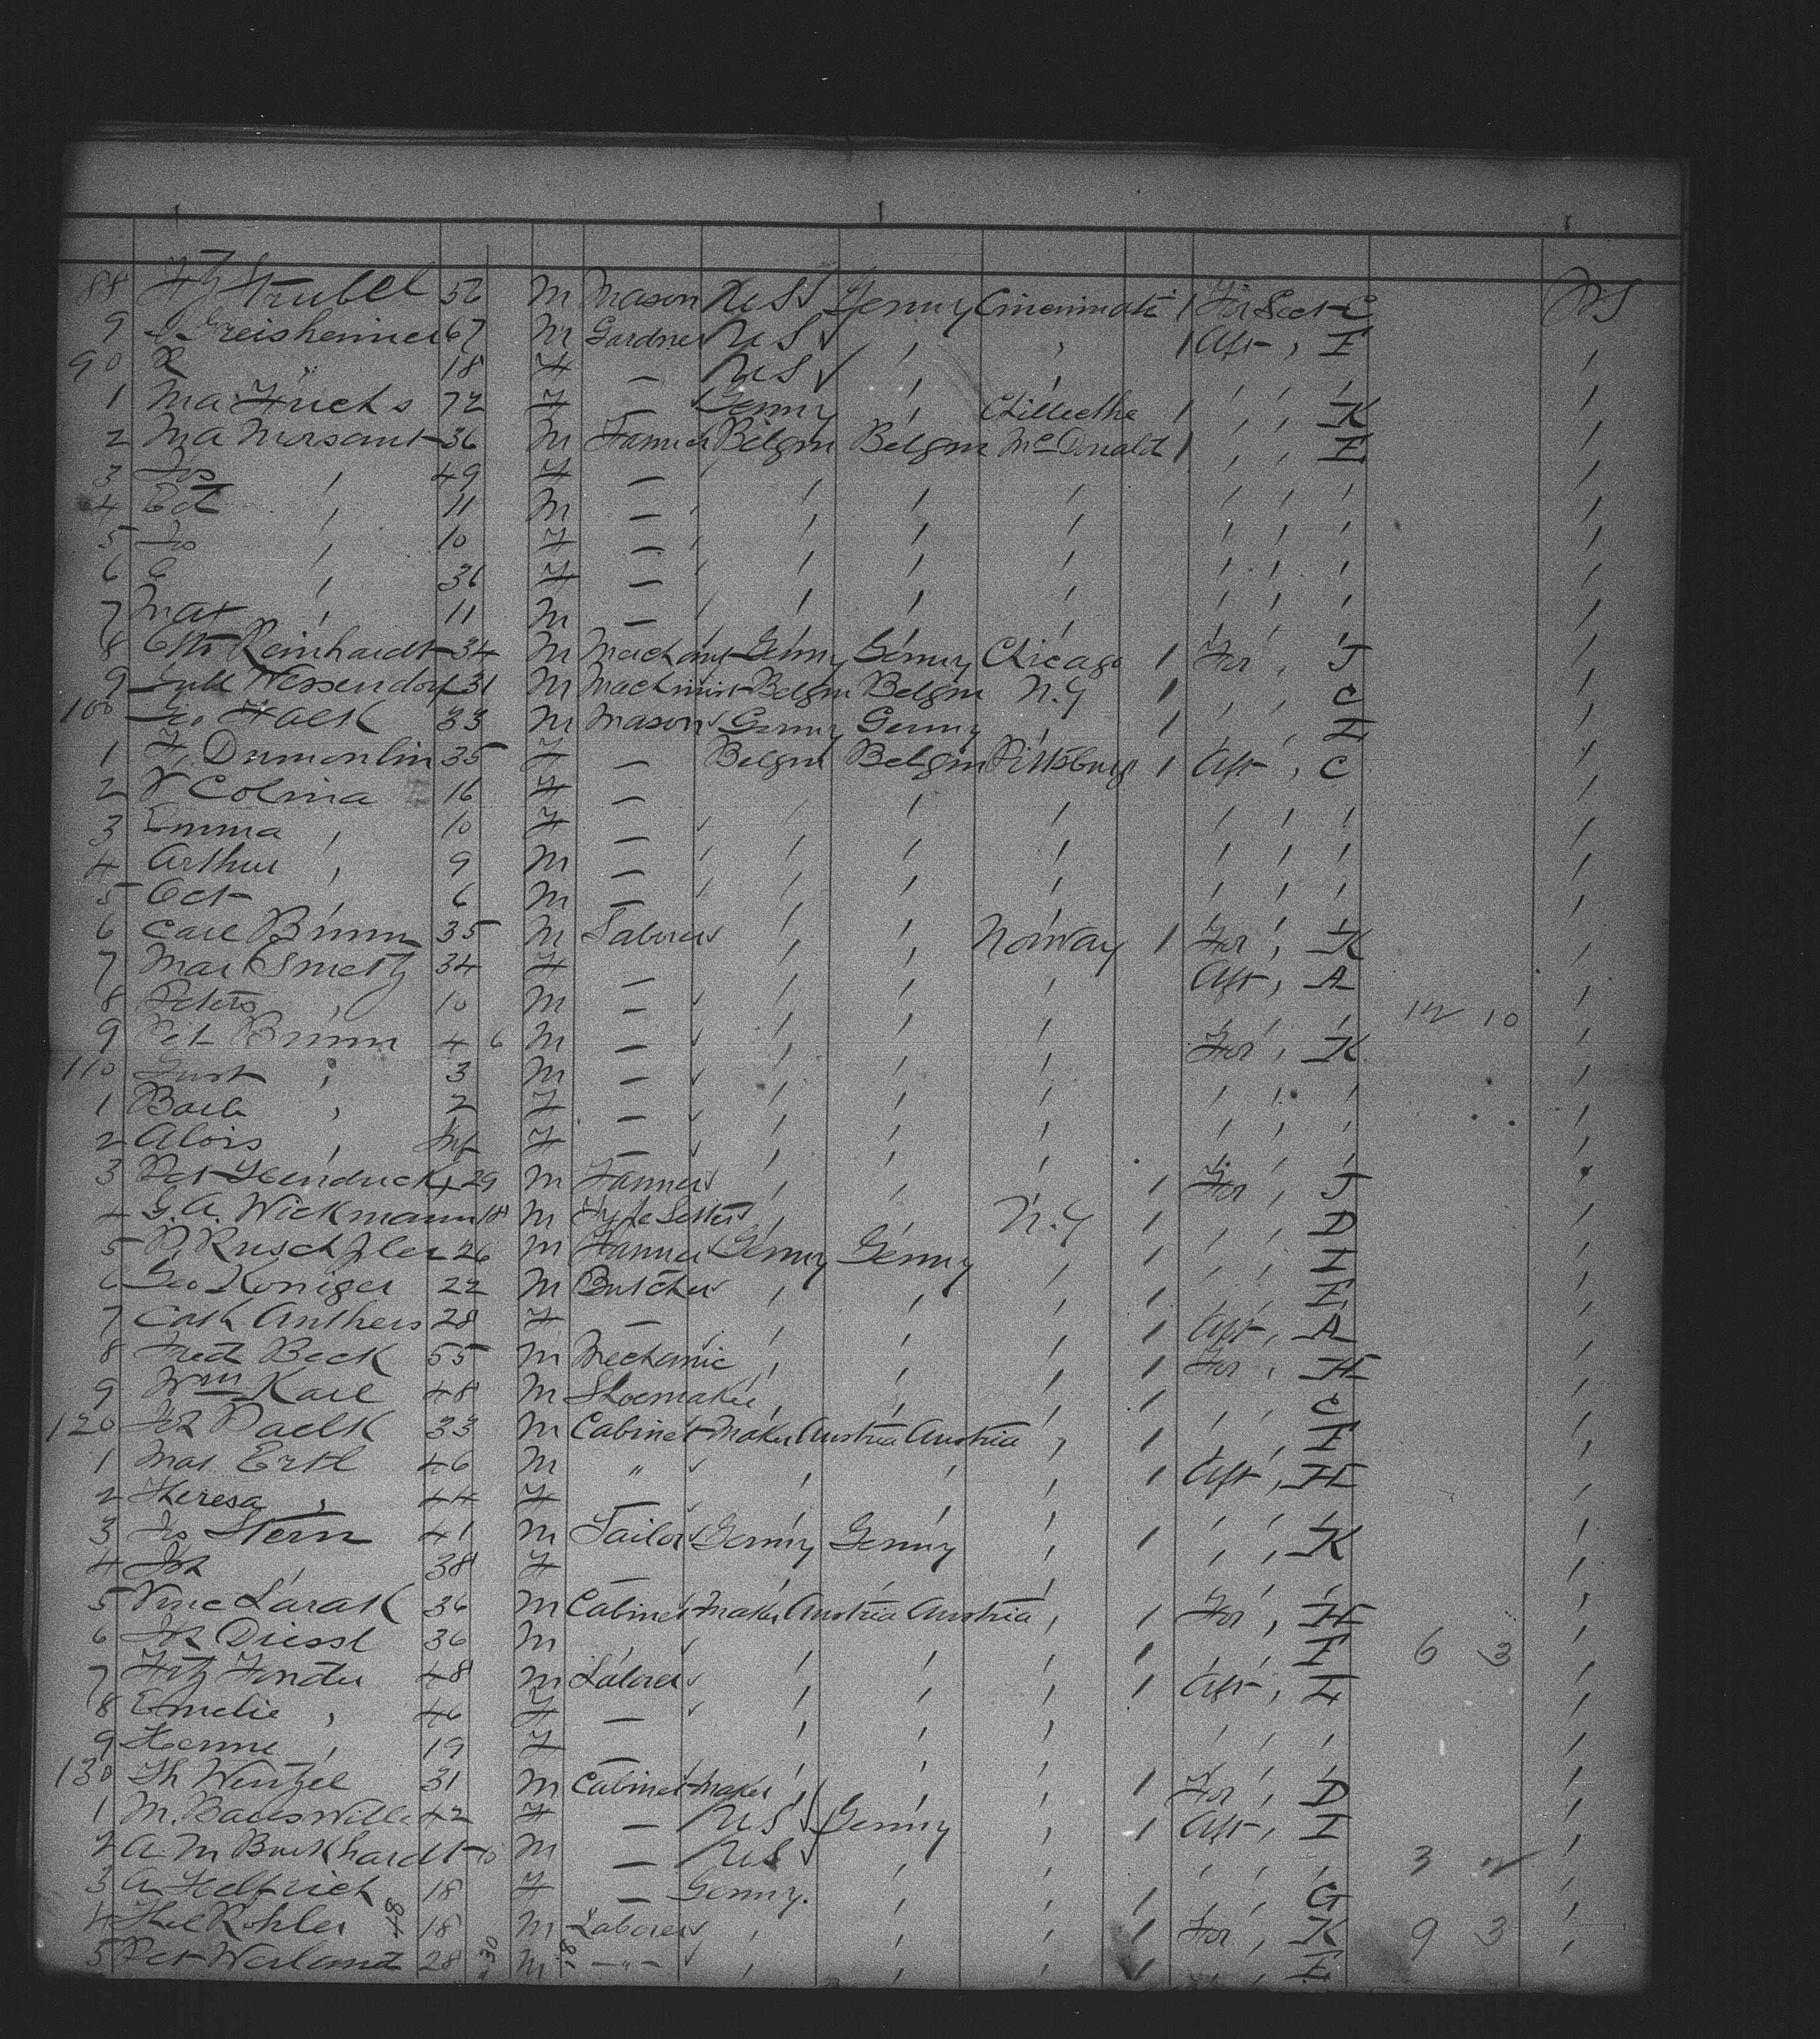 88 Strubel 52 M Mason U.S. Germy Cincinnati 1 For Sect C US
9 J Greisheimer 67 M Gardner U.S. , , 1 Aft , E
90 R " 18 F — U.S. , ,
1 Ma Fuchs 72 F — Germy , Chillecthe 1 , , K
2 Ma Mersaut 36 M Farmer Belgm Belgm McDonald 1 , , E
3 Jos , 49 F —
4 Oct , 11 M —
5 Jos , 10 F —
6 36 F —
7 Mat , 11 M —
8 Otto Reinhardt 34 M Germy Germy Chicago 1 For , J
9 Wessendorf 31 M Machinist Belgm Belgm N.Y 1 , , C
100 Geo Halk 33 M Mason Germy Germy , 1 , , I
1 F. Dumonlin 35 F — Belgm Belgm Pittsburg 1 Aft , C
2 V Colina 16 F —
3 Emma , 10 F —
4 Arthur , 9 M —
5 Oct , 6 M —
6 Carl Brimm 35 M Laborer , , Norway 1 For , K
7 Mar Smetz 34 F — , , , Aft , A
8 Peters , 10 M — 12 10
9 Pet Brimm 4 6 M — , , , For , K
110 Just , 3 M —
1 Barb , 2 F —
2 Alois , Inf F —
3 Pet Hendrick 29 M Farmer , , 1 For , J
4 G. A. Wickmann 18 M Type Setter , , N.Y 1 , , D
5 P. Ruschzler 26 M Farmer Germy Germy , 1 , , I
6 Geo Koniger 22 M Butcher , , , 1 , , E
7 Cath Anthers 28 F — , , , 1 Aft , A
8 Fred Beck 55 M Mechanic , , , 1 For , H
9 Wm Karl 48 M Shoemaker , , , 1 , , C
120 Jos Paelk 33 M Cabinet maker Austria Austria , 1 , , E
1 Mat Ertl 46 M " , , , 1 Aft , H
2 Theresa , 44 F —
3 Jos Stern 41 M Tailor Germy Germy , 1 , , K
4 Jos , 38 F —
5 Vinc Larak 36 M Cabinet maker Austria Austria , 1 For , H
6 Jos Diessl 36 M , , , , 1 , , E 6 3
7 Fritz 48 M Laborer , , , 1 Aft , I
8 Emelie , 46 F —
9 , 19 F —
130 Th Wentzel 31 M Cabinet maker , , , 1 For , D
1 M. Bauswille 42 F — U.S. Germy , 1 Aft , I
2 A. M Burkhardt 10 M — U.S. , , , , , 3 2
3 A Helfrich 18 F — Germy. , , 1 , , G
4 Hel Kohler 48 18 M Laborer , , , 1 For , K 9 3
5 Pet Weiland 28 30 M 18 — " — , , , 1 , , E